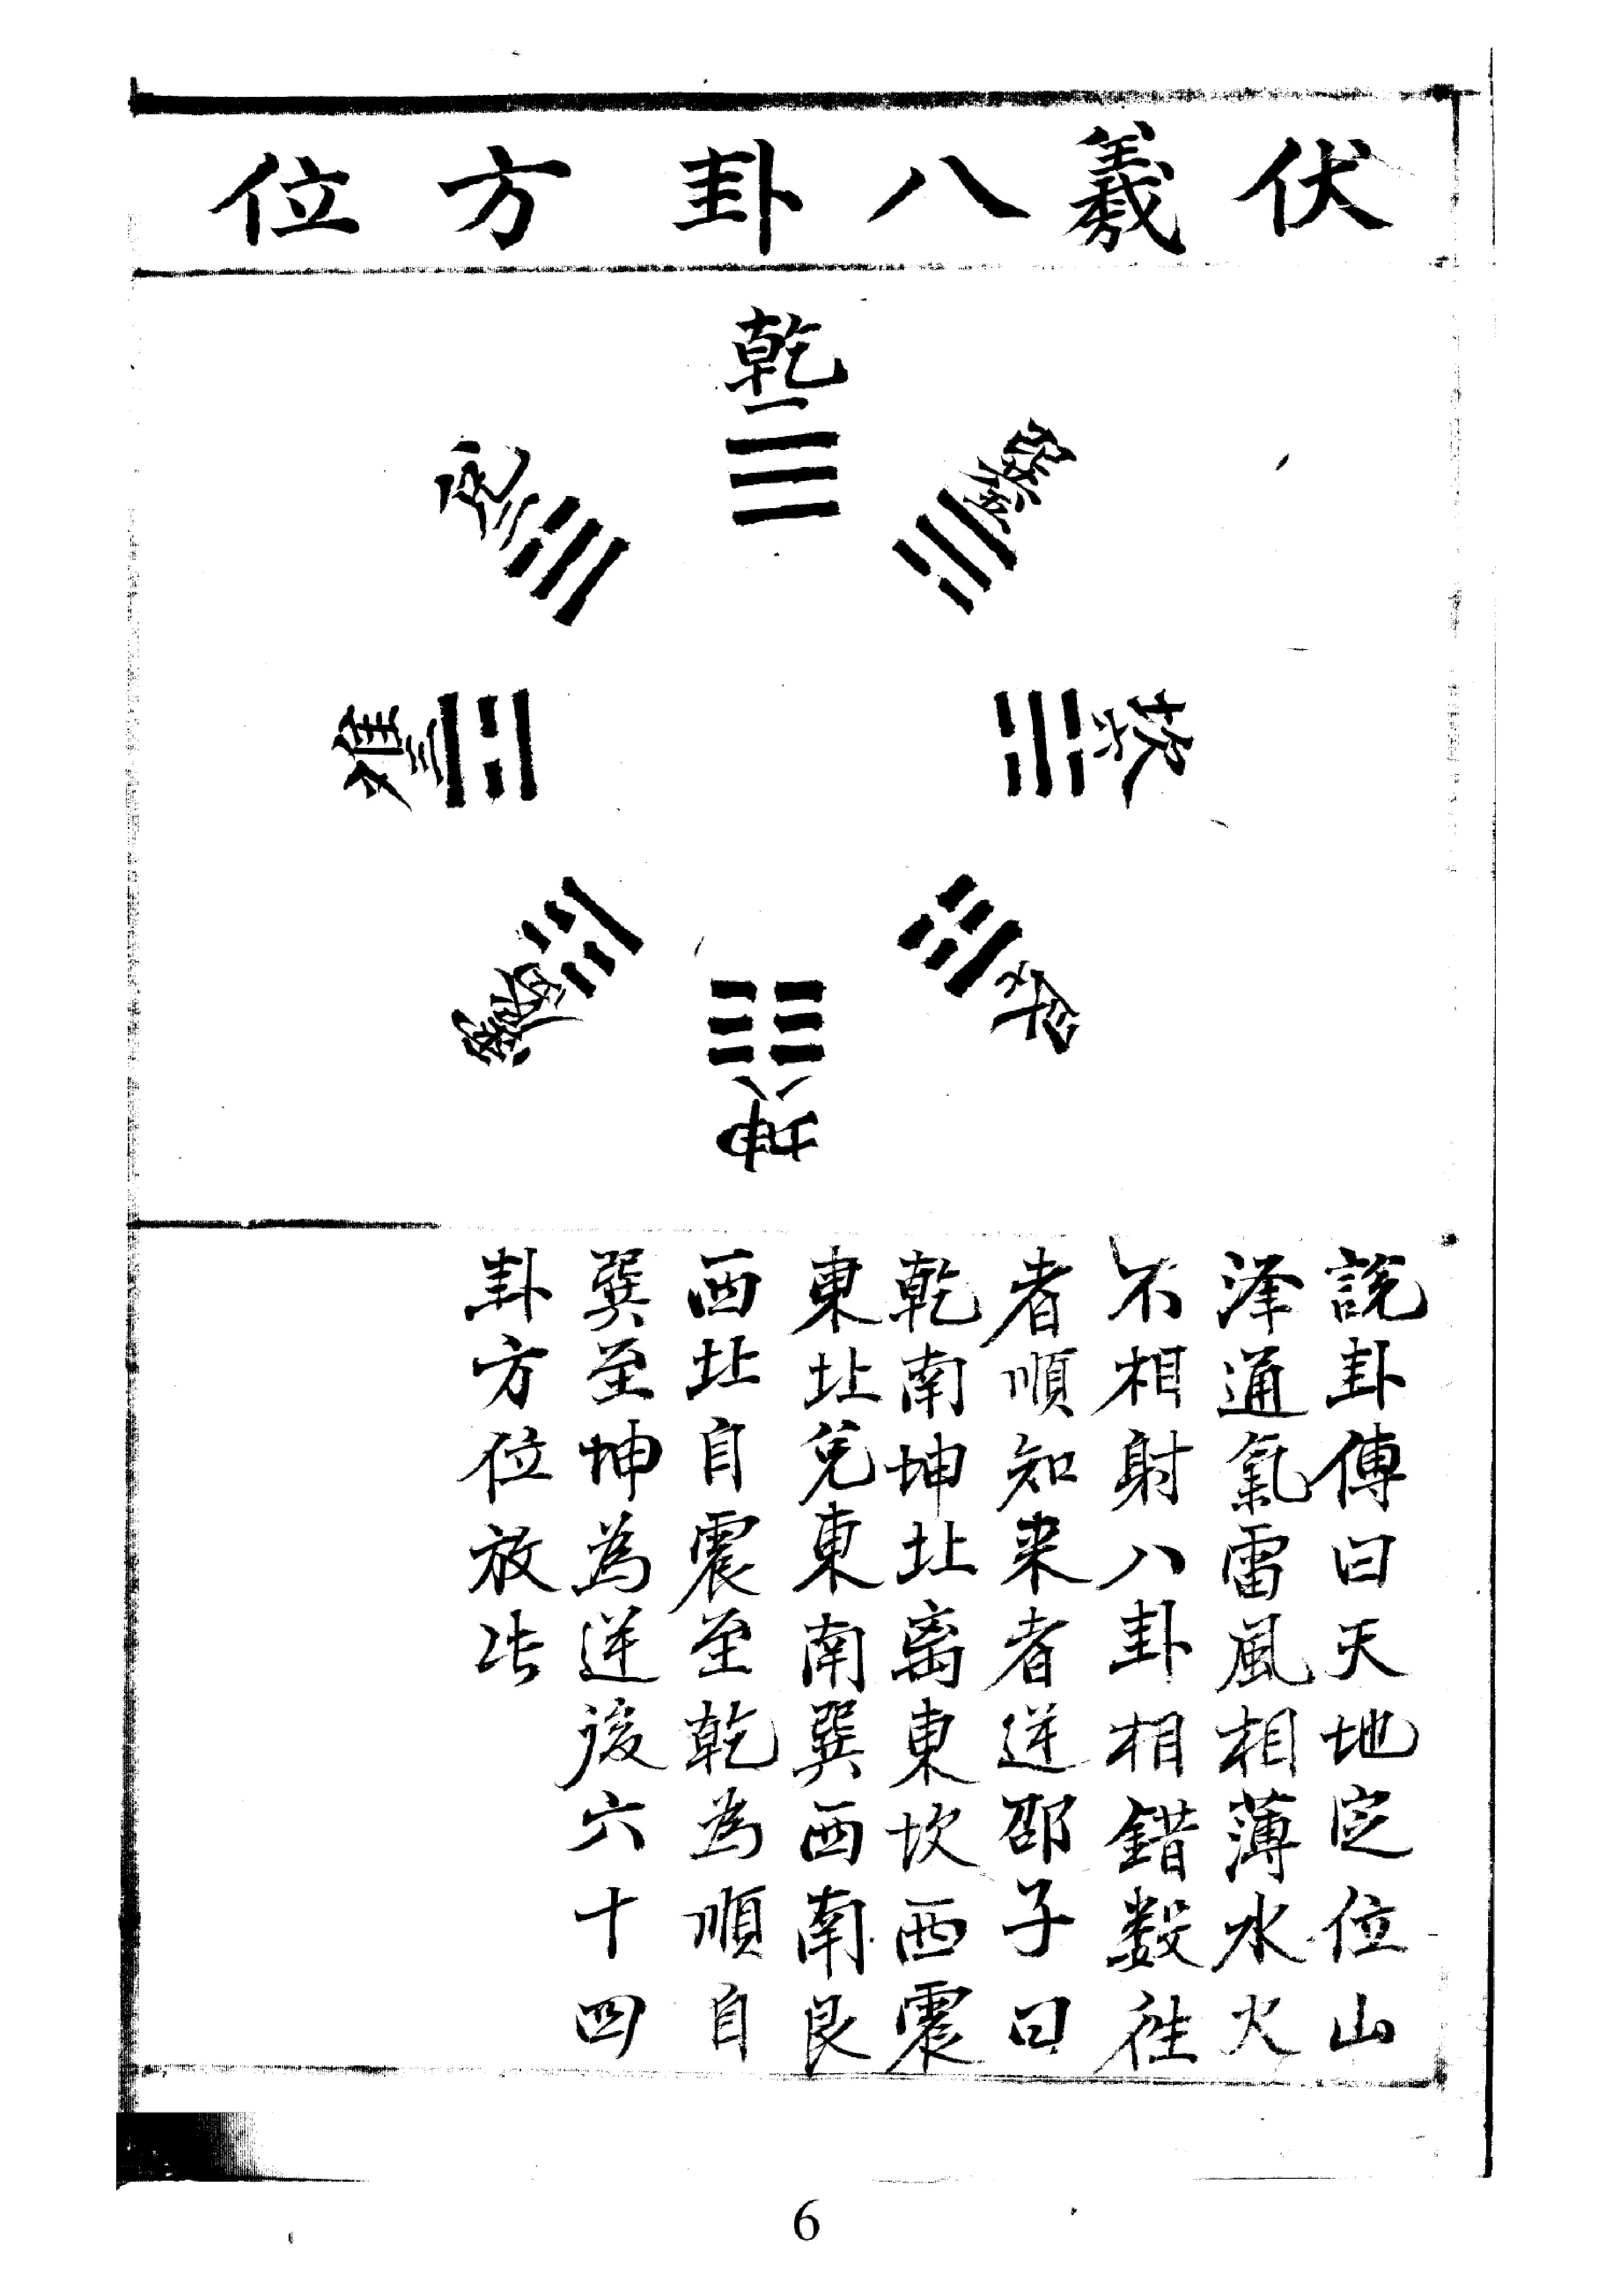 伏羲八卦方位
乾一
兌二
離三
震四
巽五
坎六
艮七
坤八
說卦傳曰天地定位山
泽通氣雷風相薄水火
不相射八卦相錯数往
者順知来者逆邵子曰
乾南坤北离東坎西震
東北兌東南巽西南艮
西北自震至乾為順自
巽至坤為逆後六十四
卦方位放此
6